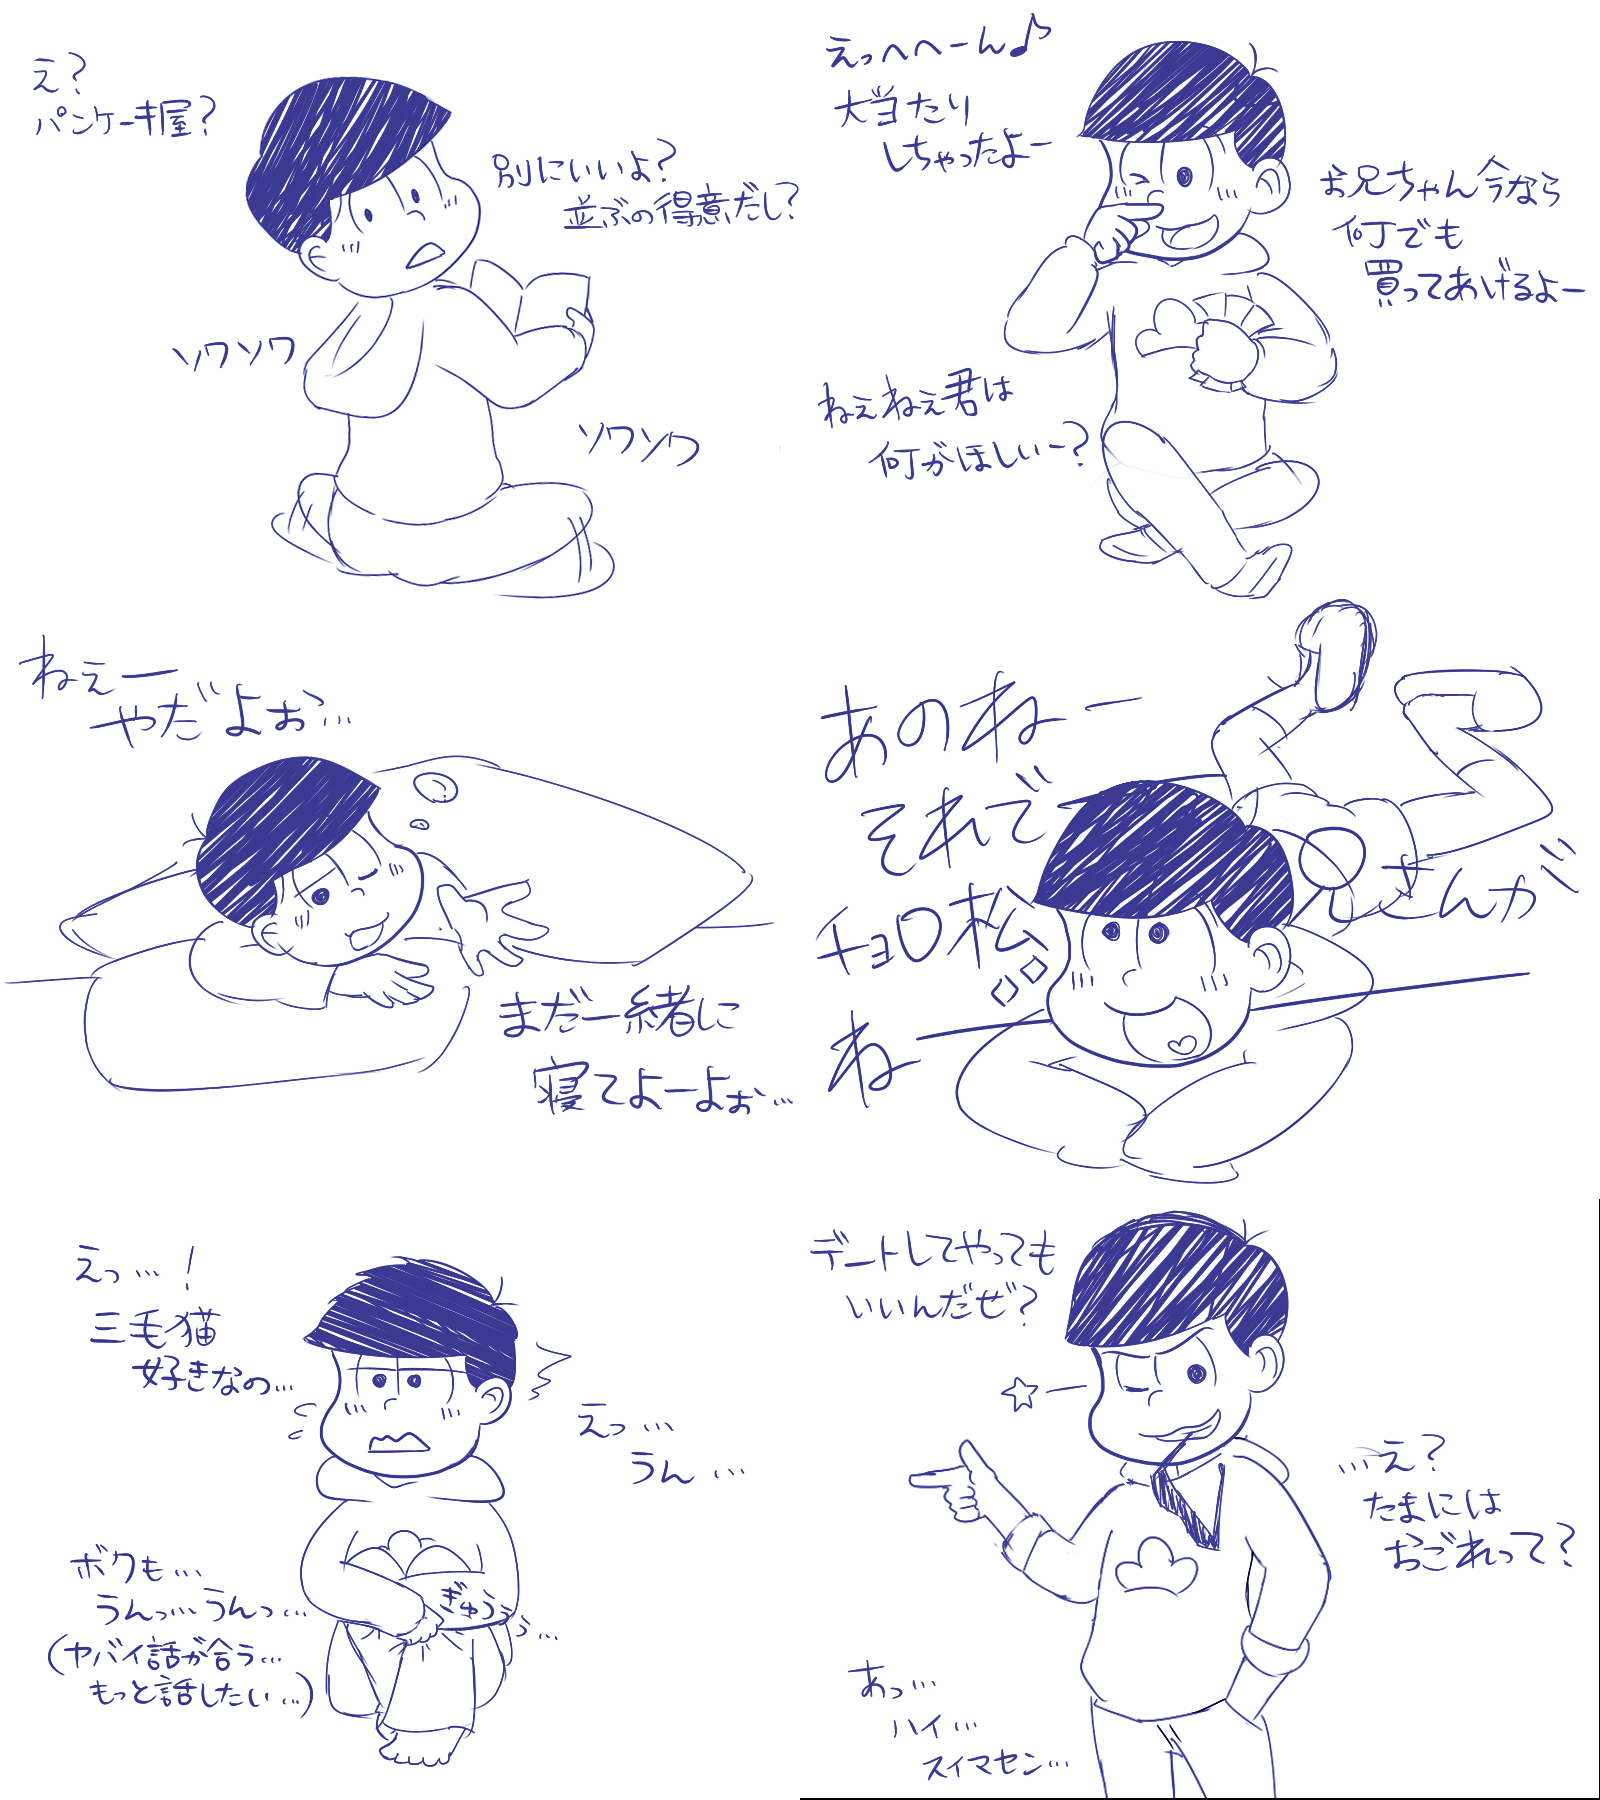 え?
パンケーキ屋?
別にいいよ?
並ぶの得意だし?
ソワソワ
ソワソワ
えっへへーん♪
大当たり
しちゃったよー
お兄ちゃん今なら
何でも
買ってあげるよー
ねぇねぇ君は
何がほしいー?
ねぇー
やだよぉ…
まだ一緒に
寝てよーよぉ…
あのねー
それで
チョロ松
兄さんが
ねー
えっ…!
三毛猫
好きなの…
えっ…
うん…
ボクも…
うんっ…うんっ…
(ヤバイ話が合う…
もっと話したい…)
ぎゅうぅぅ…
デートしてやっても
いいんだぜ?
…え?
たまには
おごれって?
あっ…
ハイ…
スイマセン…